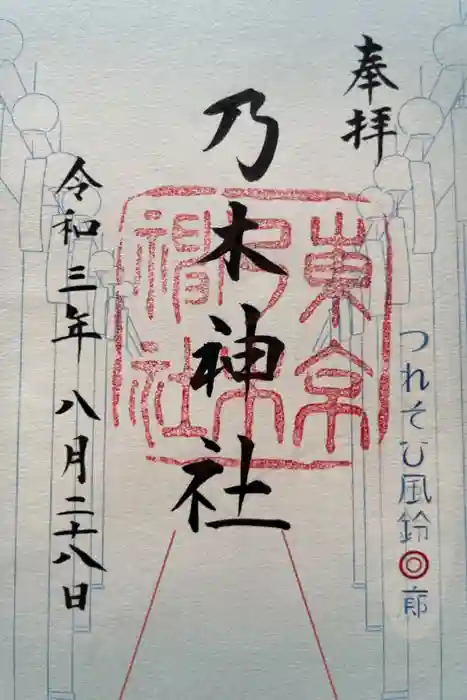 奉拝
つれそひ風鈴回廊
乃木神社
東京
乃木
神社
令和三年 八月二十八日